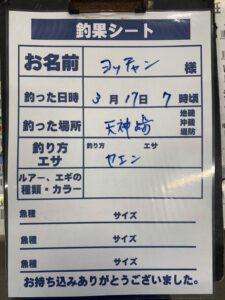 釣果シート
お名前 ヨッチャン 様
釣った日時 3月17日 7時頃
釣った場所 天神崎 地磯 沖磯 堤防
釣り方 エサ 釣り方 エサ ヤエン
ルアー、エギの種類・カラー
魚種 サイズ
魚種 サイズ
魚種 サイズ
お持ち込みありがとうございました。